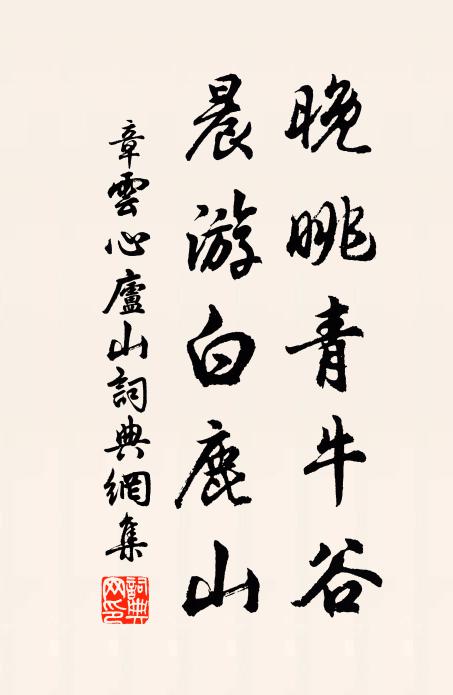 晚眺青牛谷
晨游白鹿山
章雲心廬山詞典網集
詞典网印